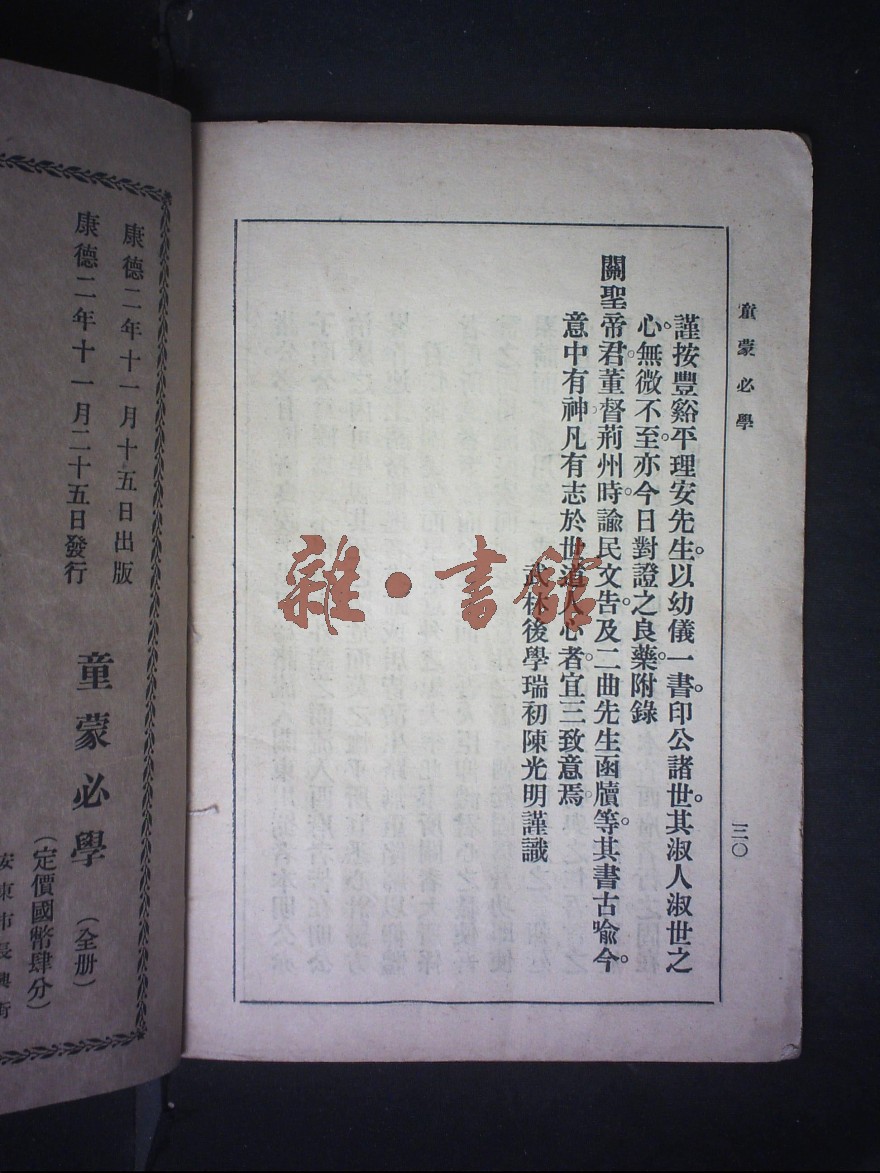 童蒙必學
三〇
謹按豐谿平理安先生。以幼儀一書。印公諸世。其淑人淑世之
心。無微不至。亦今日對證之良藥。附錄
關聖帝君。董督荊州時。諭民文告。及二曲先生函牘等。其書古喻今。
意中有神。凡有志於世道人心者。宜三致意焉。
武林後學瑞初陳光明謹識
雜·書館
康德二年十一月十五日出版
康德二年十一月二十五日發行
童蒙必學（全册）
（定價國幣肆分）
安東市長興街